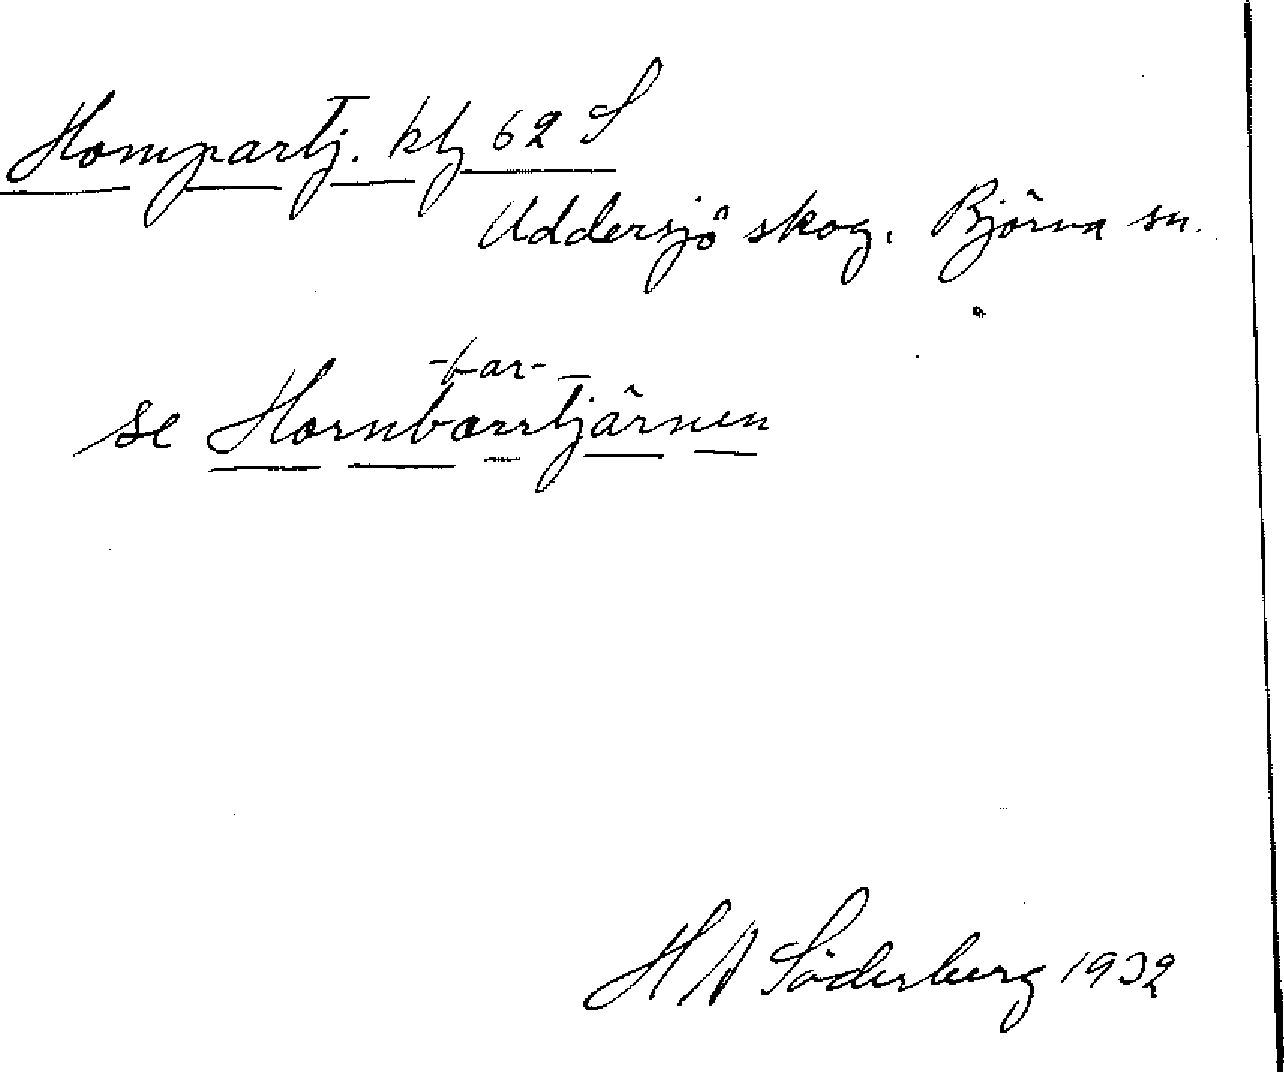 Hompartj. kbg 62 S
Uddersjö skog. Björna sn.
-bar-
se Hornbarrtjärnen
H A Söderberg 1932